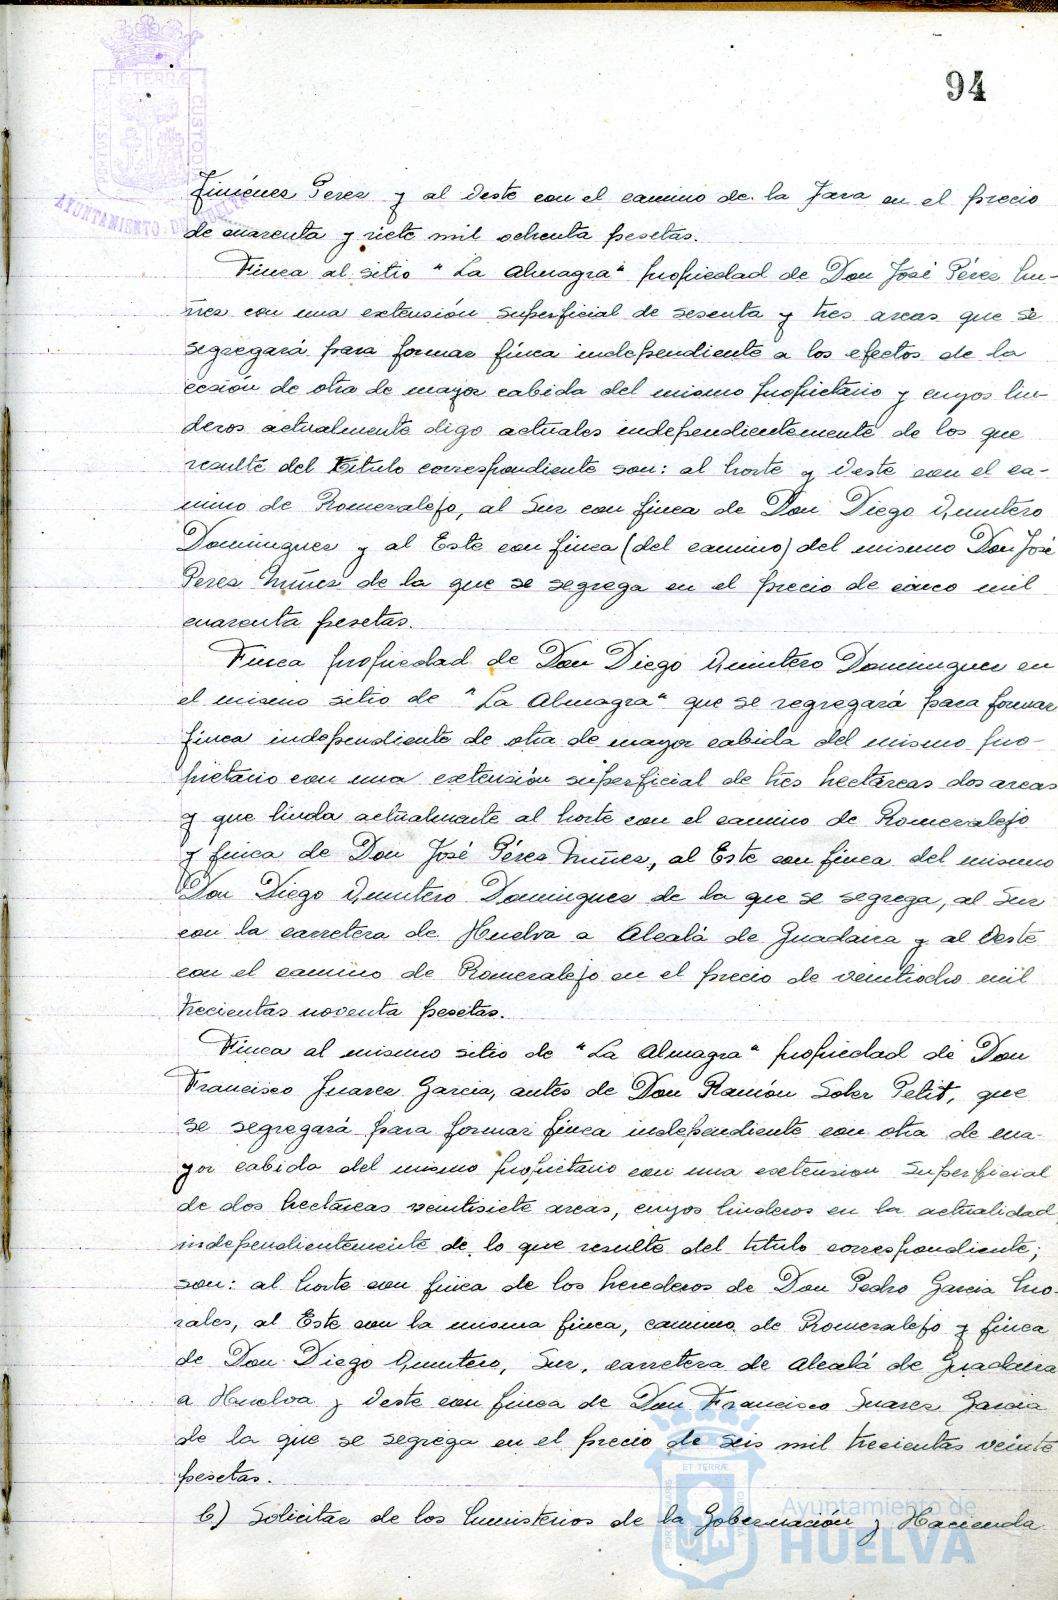 94
ET TERRÆ
CUSTODI
AYUNTAMIENTO DE HUELVA
Jiménez Perez y al Oeste con el camino de la Jara en el precio
de cuarenta y siete mil ochenta pesetas.
Finca al sitio "La Almagra" propiedad de Don José Pérez Nu-
ñez con una extensión superficial de sesenta y tres areas que se
segregará para formar finca independiente a los efectos de la
cesión de otra de mayor cabida del mismo propietario y cuyos lin-
deros actualmente digo actuales independientemente de los que
resulte del título correspondiente son: al Norte y Oeste con el ca-
mino de Romeralejo, al Sur con finca de Don Diego Quintero
Dominguez y al Este con finca (del camino) del mismo Don José
Perez Nuñez de la que se segrega en el precio de cinco mil
cuarenta pesetas.
Finca propiedad de Don Diego Quintero Dominguez en
el mismo sitio de "La Almagra" que se segregará para formar
finca independiente de otra de mayor cabida del mismo pro-
pietario con una extensión superficial de tres hectáreas dos areas
y que linda actualmente al Norte con el camino de Romeralejo
y finca de Don José Pérez Nuñez, al Este con finca del mismo
Don Diego Quintero Dominguez de la que se segrega, al Sur
con la carretera de Huelva a Alcalá de Guadaira y al Oeste
con el camino de Romeralejo en el precio de veintiocho mil
trecientas noventa pesetas.
Finca al mismo sitio de "La Almagra" propiedad de Don
Francisco Suarez Garcia, antes de Don Ramón Soler Petit, que
se segregará para formar finca independiente con otra de ma-
yor cabida del mismo propietario con una extension superficial
de dos hectáreas veintisiete areas, cuyos linderos en la actualidad,
independientemente de lo que resulte del título correspondiente;
son: al Norte con finca de los herederos de Don Pedro Garcia Mo-
rales, al Este con la misma finca, camino de Romeralejo y finca
de Don Diego Quintero, Sur, carretera de Alcalá de Guadaira
a Huelva y Oeste con finca de Don Francisco Suarez Garcia
de la que se segrega en el precio de seis mil trecientas veinte
pesetas.
b) Solicitar de los Ministerios de la Gobernación y Hacienda
ET TERRÆ
Ayuntamiento de
HUELVA